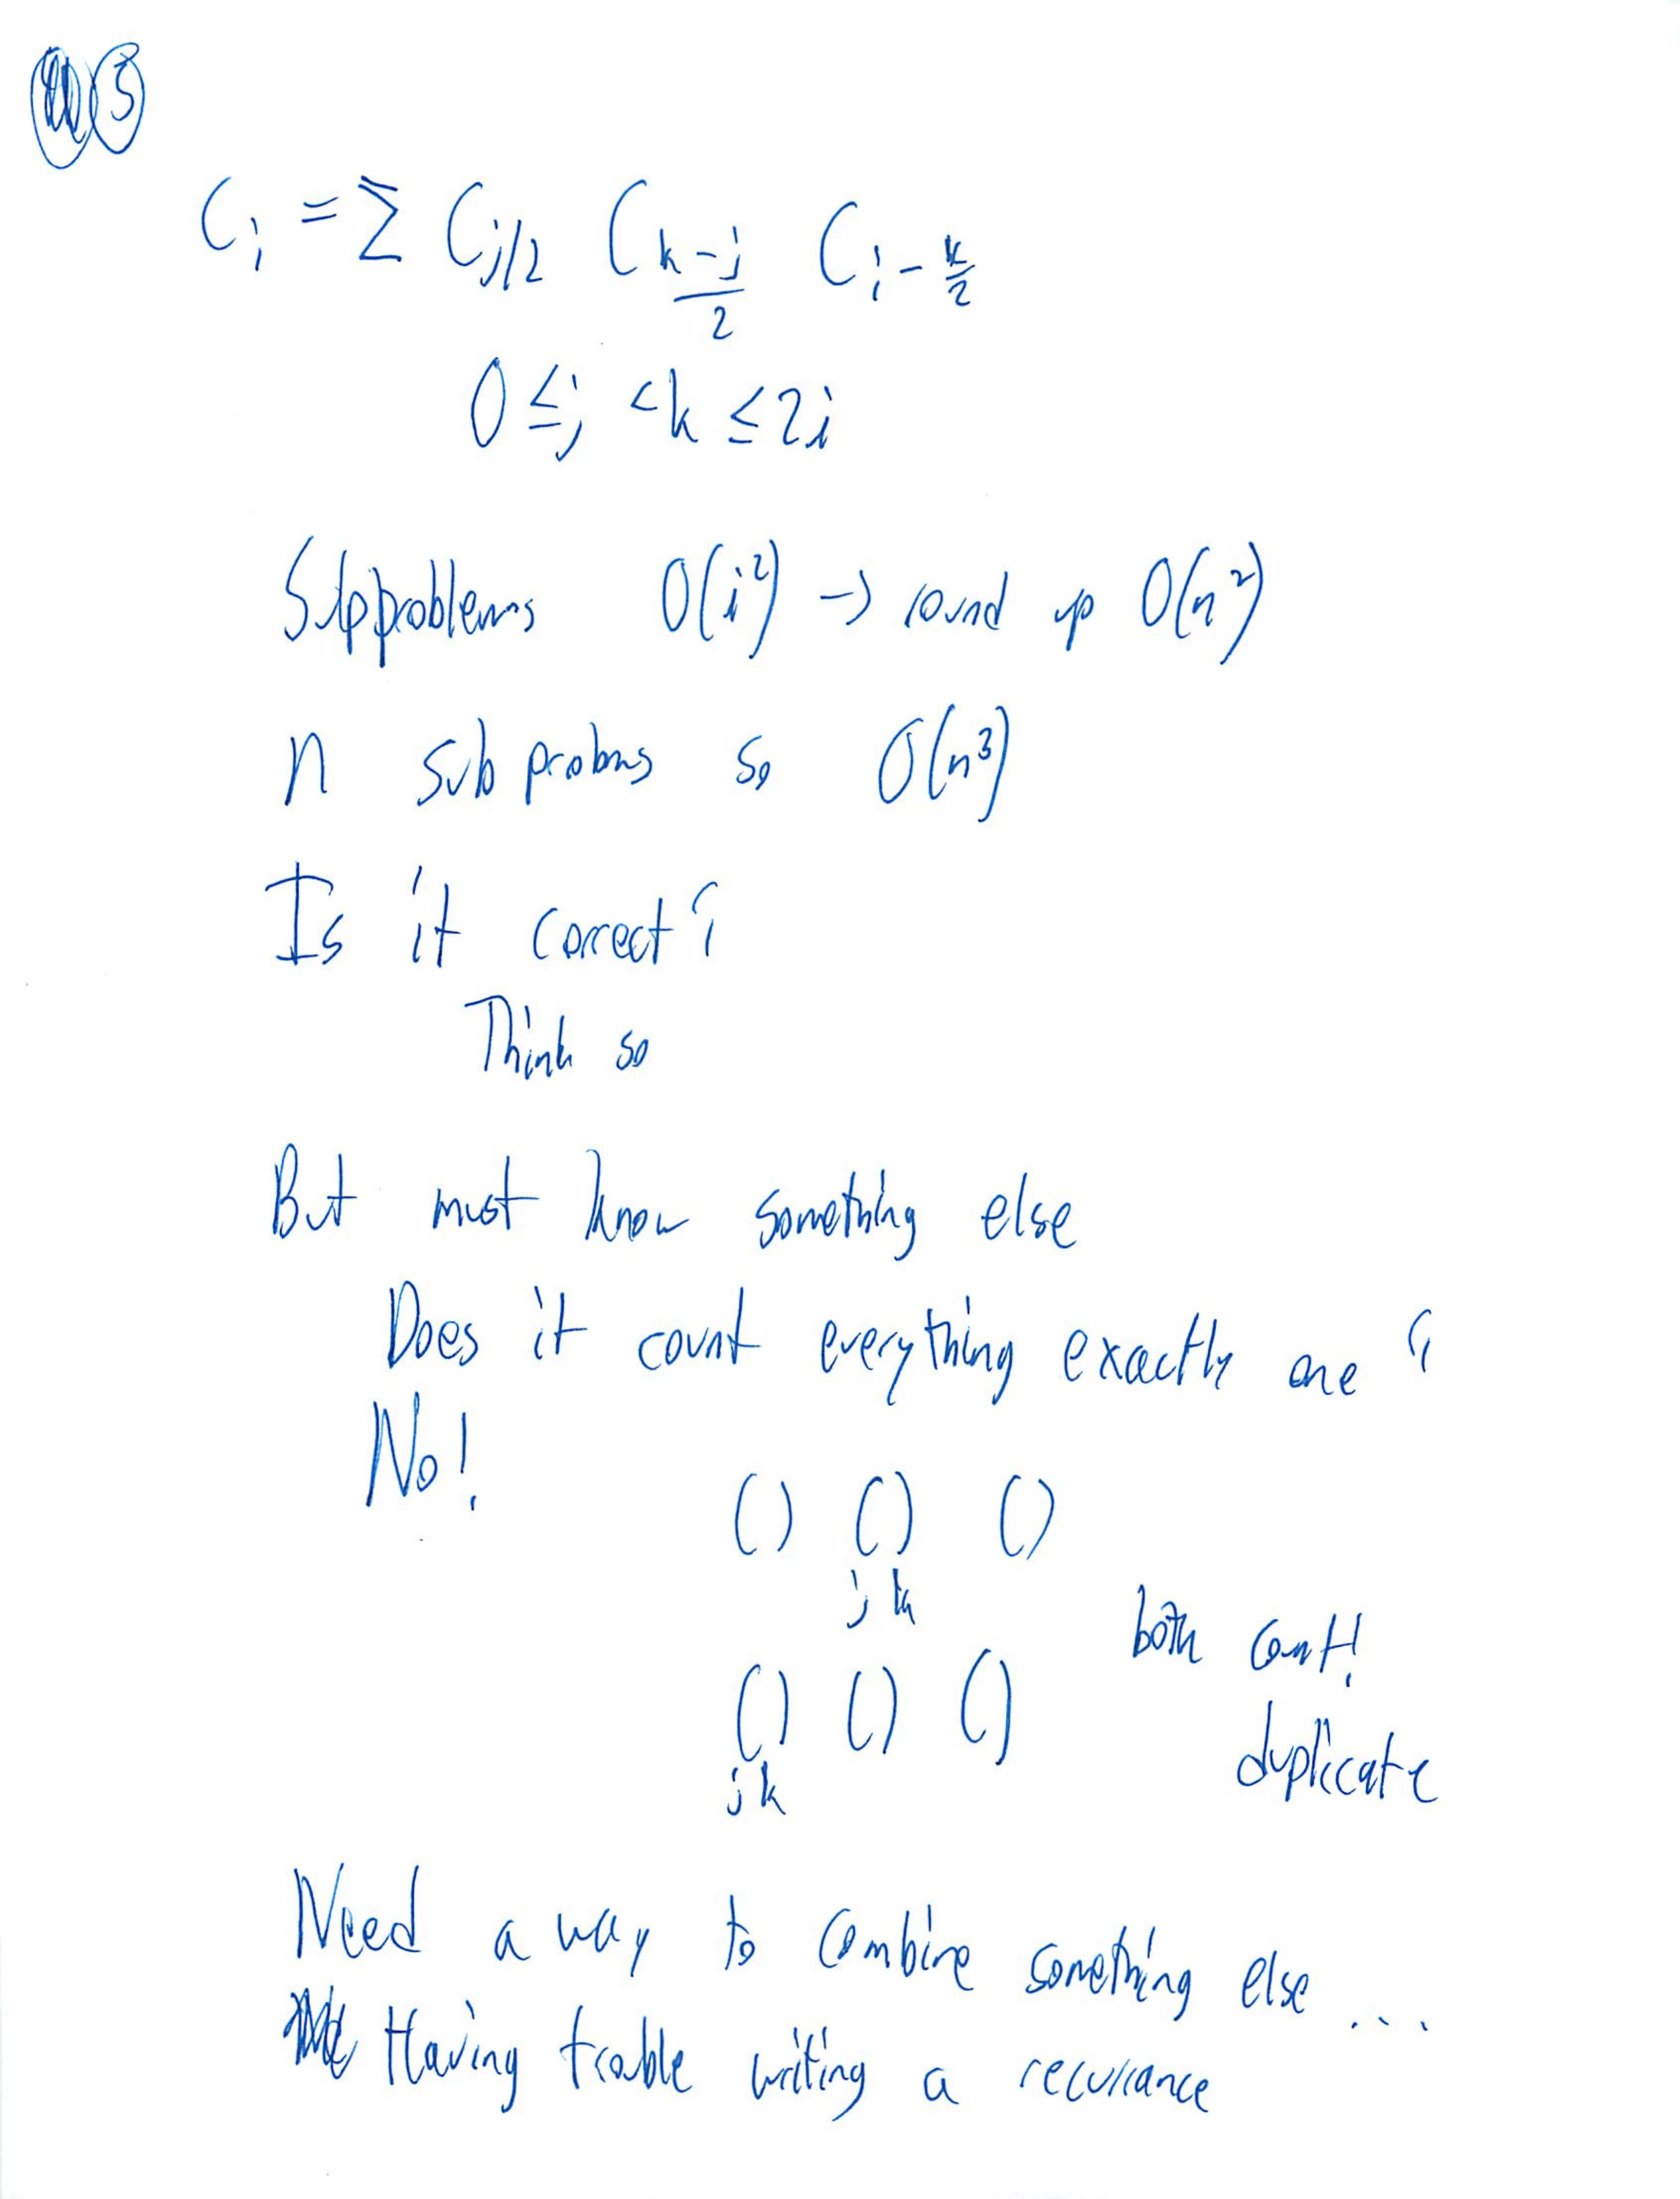 5
C_i = Σ C_{j/2} C_{\frac{k-j}{2}} C_{i-\frac{k}{2}}
0 ≤ j < k ≤ 2i
Subproblems O(i²) → round up O(n²)
n sub probms so O(n³)
Is it correct?
Think so
But must know something else
Does it count everything exactly one?
No!
() () ()
j k
both count!
() () ()
duplicate
j k
Need a way to combine something else ...
Having trouble writing a recurrance